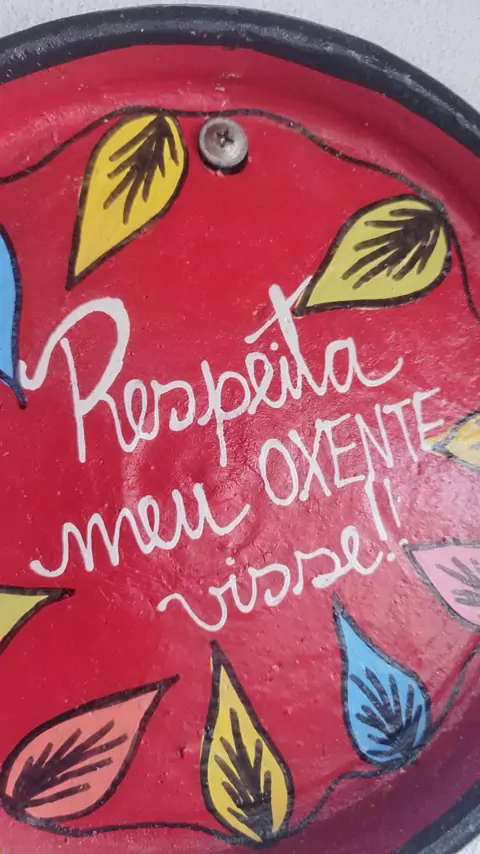 Respeita
meu OXENTE
visse!!